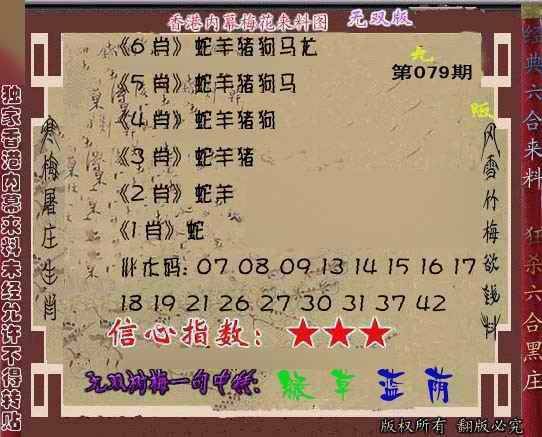 香港内幕梅花来料图 无双版
《6肖》蛇羊猪狗马龙
无
第079期
《5肖》蛇羊猪狗马
版
《4肖》蛇羊猪狗
《3肖》蛇羊猪
《2肖》蛇羊
《1肖》蛇
07 08 09 13 14 15 16 17
18 19 21 26 27 30 31 37 42
信心指数：★★★
无双 梅一句中特：绿草蓝荫
独家香港内幕来料未经允许不得转贴
寒梅屠庄生肖
风雪竹梅欲钱料
经典六合来料 狂杀六合黑庄
版权所有 翻版必究